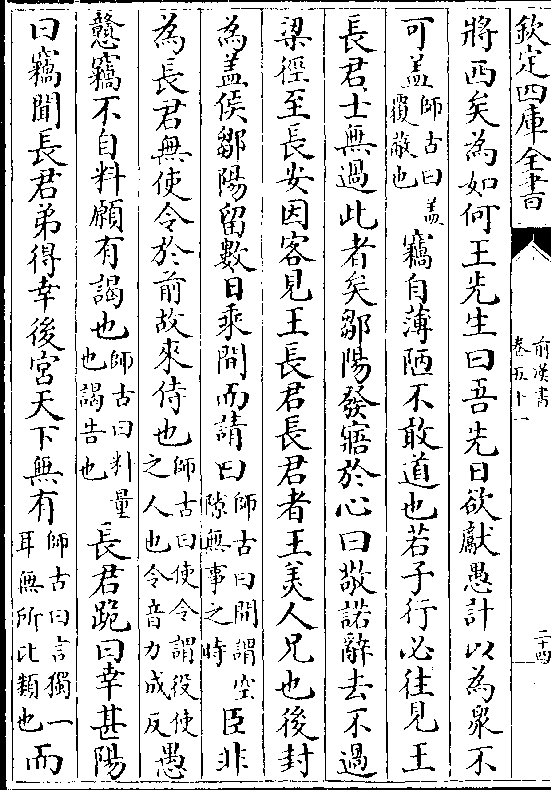 欽定四庫全書
前漢書
卷五十一
二十四
將西矣為如何王先生曰吾先日欲獻愚計以為衆不
可蓋師古曰蓋覆蔽也竊自薄陋不敢道也若子行必往見王
長君士無過此者矣鄒陽發寤於心曰敬諾辭去不過
梁徑至長安因客見王長君長君者王美人兄也後封
為蓋侯鄒陽留數日乘間而請曰師古曰間謂空隙無事之時臣非
為長君無使令於前故來侍也師古曰使令謂役使之人也令音力成反愚
戇竊不自料願有謁也師古曰料量也謁告也長君跪曰幸甚陽
曰竊聞長君弟得幸後宮天下無有師古曰言獨一耳無所比類也而